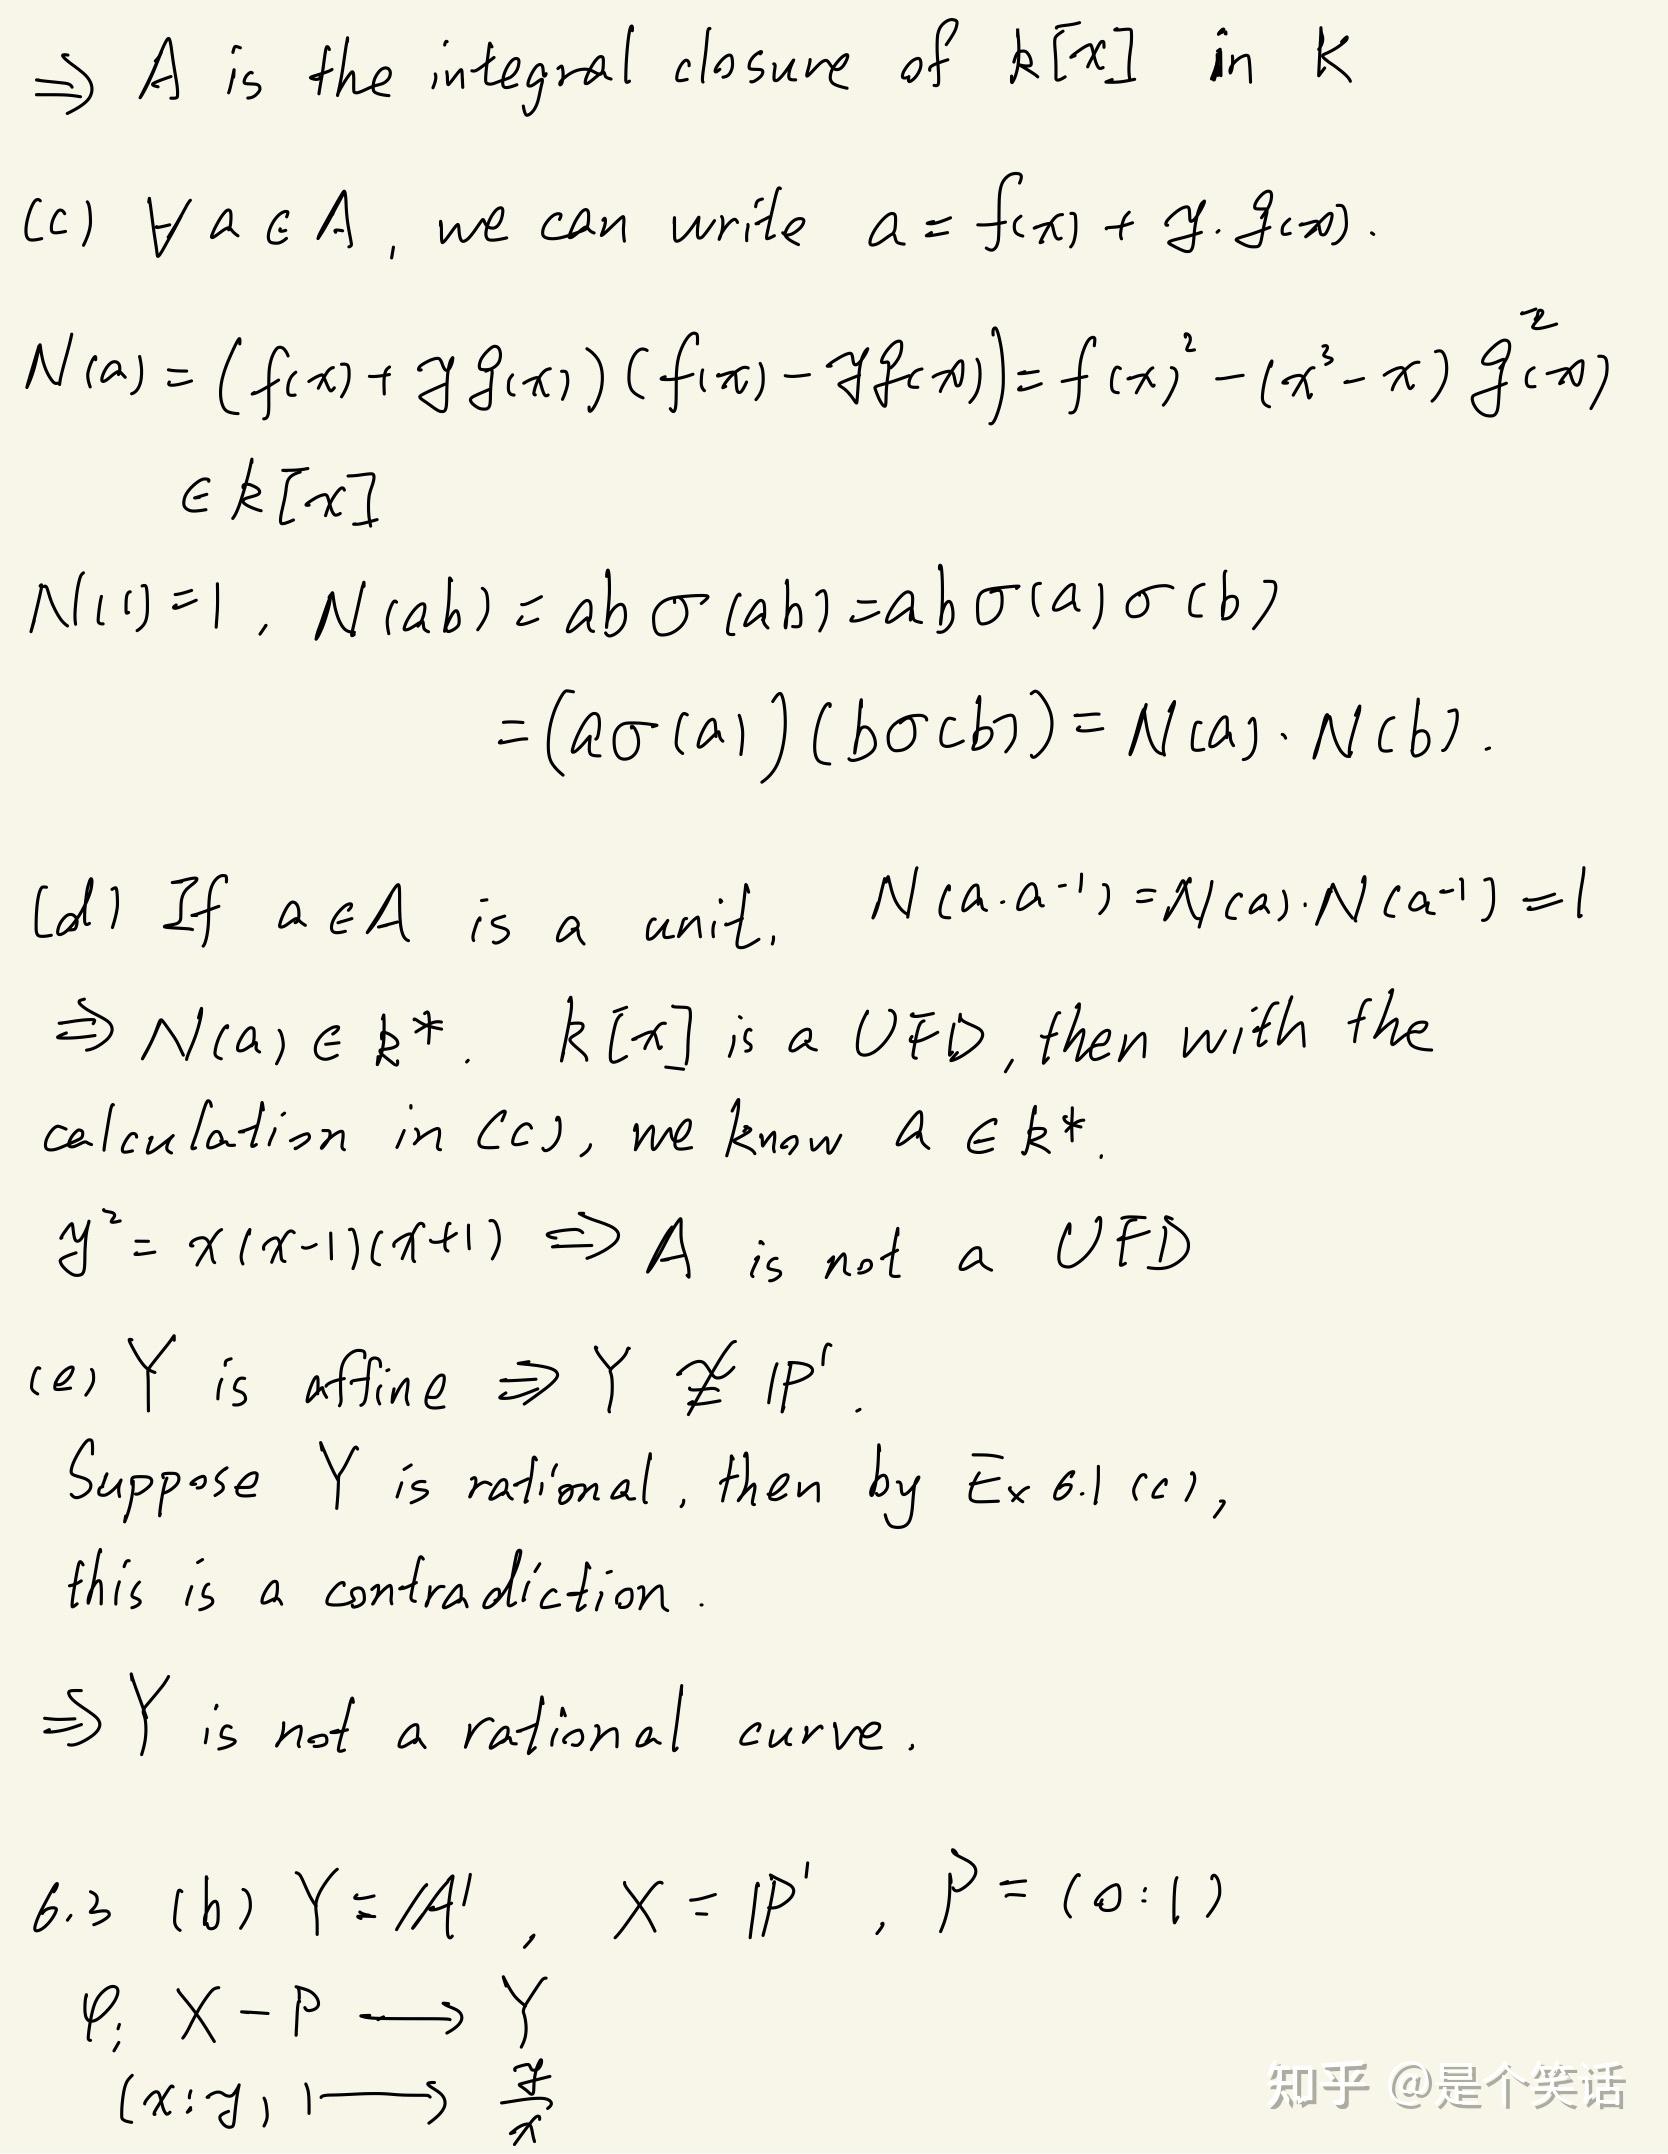 ⇒ A is the integral closure of k[x] in K
(c) ∀ a ∈ A, we can write a = f(x) + y·g(x).
N(a) = (f(x) + y g(x))(f(x) - y g(x)) = f(x)² - (x³ - x) g(x)²
∈ k[x]
N(1) = 1, N(ab) = ab σ(ab) = ab σ(a) σ(b)
= (aσ(a))(bσ(b)) = N(a)·N(b).
(d) If a ∈ A is a unit, N(a·a⁻¹) = N(a)·N(a⁻¹) = 1
⇒ N(a) ∈ k*. k[x] is a UFD, then with the
calculation in (c), we know a ∈ k*.
y² = x(x-1)(x+1) ⇒ A is not a UFD
(e) Y is affine ⇒ Y ≇ ℙ¹.
Suppose Y is rational, then by Ex 6.1 (c),
this is a contradiction.
⇒ Y is not a rational curve.
6.3 (b) Y = 𝔸¹, X = ℙ¹, P = (0:1)
φ: X - P ⟶ Y
(x:y) ⟼ y/x
知乎 @是个笑话